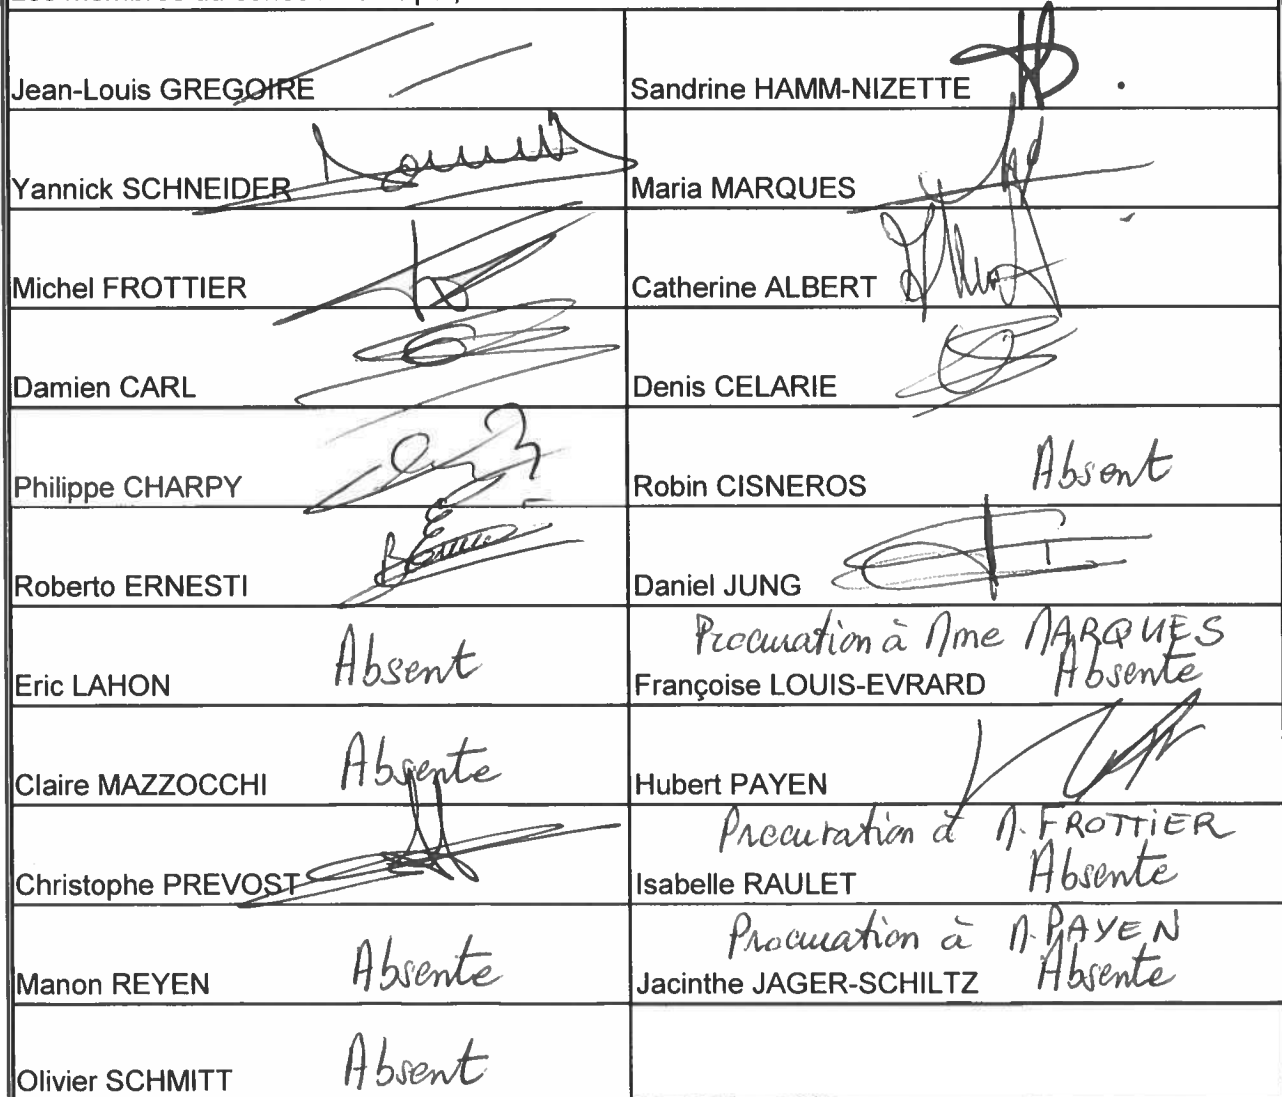 Jean-Louis GREGOIRE
Sandrine HAMM-NIZETTE
Yannick SCHNEIDER
Maria MARQUES
Michel FROTTIER
Catherine ALBERT
Damien CARL
Denis CELARIE
Philippe CHARPY
Robin CISNEROS Absent
Roberto ERNESTI
Daniel JUNG
Eric LAHON Absent
Procuration à Mme MARQUES
Françoise LOUIS-EVRARD Absente
Claire MAZZOCCHI Absente
Hubert PAYEN
Christophe PREVOST
Procuration à M. FROTTIER
Isabelle RAULET Absente
Manon REYEN Absente
Procuration à M. PAYEN
Jacinthe JAGER-SCHILTZ Absente
Olivier SCHMITT Absent